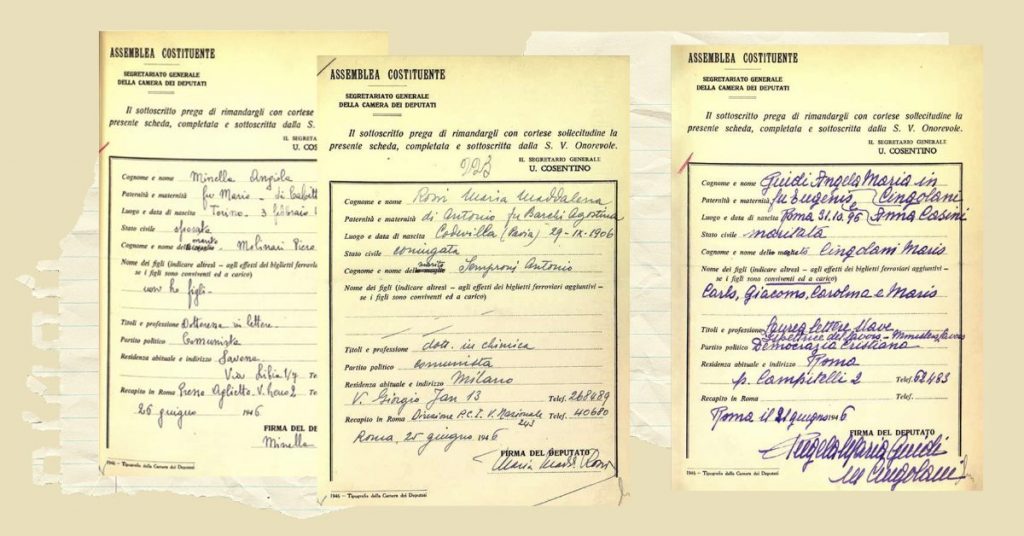 ASSEMBLEA COSTITUENTE
SEGRETARIATO GENERALE
DELLA CAMERA DEI DEPUTATI
Il sottoscritto prega di rimandargli con
presente scheda, completata e sottoscritta dalla S. V.
IL SEGRETA
U. COS
Cognome e nome Minella Angiola
Paternità e maternità fu Mario - di
Luogo e data di nascita Torino - 3 febbraio
Stato civile sposata
Cognome e nome marito Molinari Piero
Nome dei figli (indicare altresì - agli effetti dei biglietti
se i figli sono conviventi ed a carico)
non ho figli -
Titoli e professione Dottoressa in lettere -
Partito politico Comunista
Residenza abituale e indirizzo Savona
Via Libia 1/7 Te
Recapito in Roma Presso Aglietto - V.
25 giugno 1946
FIRMA DEL DE
Minella
1946 - Tipografia della Camera dei Deputati
ASSEMBLEA COSTITUENTE
SEGRETARIATO GENERALE
DELLA CAMERA DEI DEPUTATI
Il sottoscritto prega di rimandargli con cortese sollecitudine la
presente scheda, completata e sottoscritta dalla S. V. Onorevole.
IL SEGRETARIO GENERALE
U. COSENTINO
223
Cognome e nome Rossi Maria Maddalena
Paternità e maternità di Antonio fu Barchi Agostina
Luogo e data di nascita Codevilla (Pavia) 29-IX-1906
Stato civile coniugata
Cognome e nome marito Semproni Antonio
Nome dei figli (indicare altresì - agli effetti dei biglietti ferroviari aggiuntivi -
se i figli sono conviventi ed a carico)
Titoli e professione dott. in chimica
Partito politico comunista
Residenza abituale e indirizzo Milano
V. Giorgio Jan 13 Telef. 268489
Recapito in Roma Direzione P.C.I. V. Nazionale 243 Telef. 40680
Roma, 25 giugno 1946
FIRMA DEL DEPUTATO
Maria Madd. Rossi
1946 - Tipografia della Camera dei Deputati
ASSEMBLEA COSTITUENTE
SEGRETARIATO GENERALE
DELLA CAMERA DEI DEPUTATI
Il sottoscritto prega di rimandargli con cortese sollecitudine la
presente scheda, completata e sottoscritta dalla S. V. Onorevole.
IL SEGRETARIO GENERALE
U. COSENTINO
Cognome e nome Guidi Angela Maria in Cingolani
Paternità e maternità fu Eugenio e Anna Casini
Luogo e data di nascita Roma 31.10.96
Stato civile maritata
Cognome e nome del marito Cingolani Mario
Nome dei figli (indicare altresì - agli effetti dei biglietti ferroviari aggiuntivi -
se i figli sono conviventi ed a carico)
Carlo, Giacomo, Carolina e Mario
Titoli e professione Laurea lettere slave
Ispettrice del lavoro - Ministero lavoro
Partito politico Democrazia Cristiana
Residenza abituale e indirizzo Roma
p. Campitelli 2 Telef. 62493
Recapito in Roma Telef.
Roma il 21 giugno 1946
FIRMA DEL DEPUTATO
Angela Maria Guidi
in Cingolani
1946 - Tipografia della Camera dei Deputati